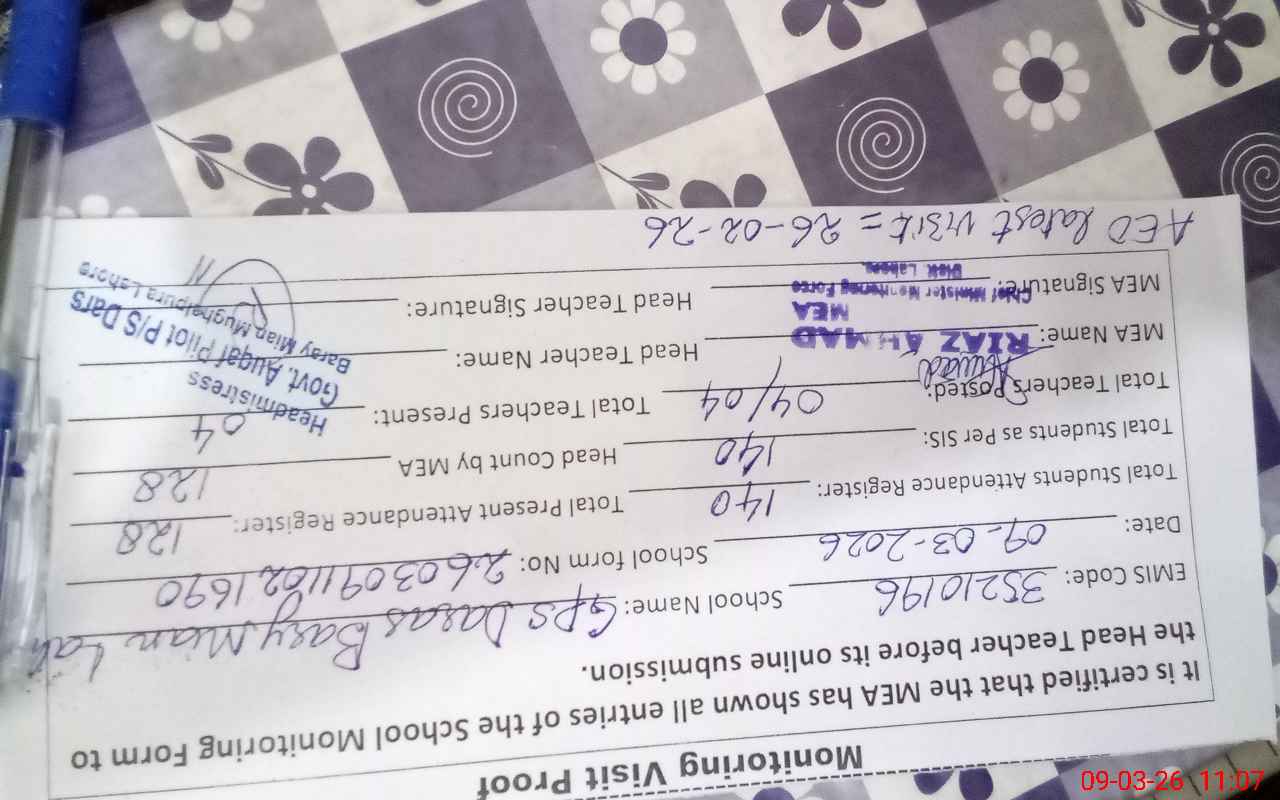 Monitoring Visit Proof
It is certified that the MEA has shown all entries of the School Monitoring Form to
the Head Teacher before its online submission.
EMIS Code: 35210196 School Name: GPS Daras Bary Mian Lah
Date: 09-03-2026 School form No: 26030911021690
Total Students Attendance Register: 140 Total Present Attendance Register: 128
Total Students as Per SIS: 140 Head Count by MEA 128
Total Teachers Posted: 04/04 Total Teachers Present: 04
MEA Name: RIAZ AHMAD Head Teacher Name:
MEA
Chief Minister Monitoring Force
Distt. Lahore.
MEA Signature: Head Teacher Signature:
Headmistress
Govt. Auqaf Pilot P/S Dars
Baray Mian Mughalpura Lahore
AEO latest visit = 26-02-26
09-03-26 11:07